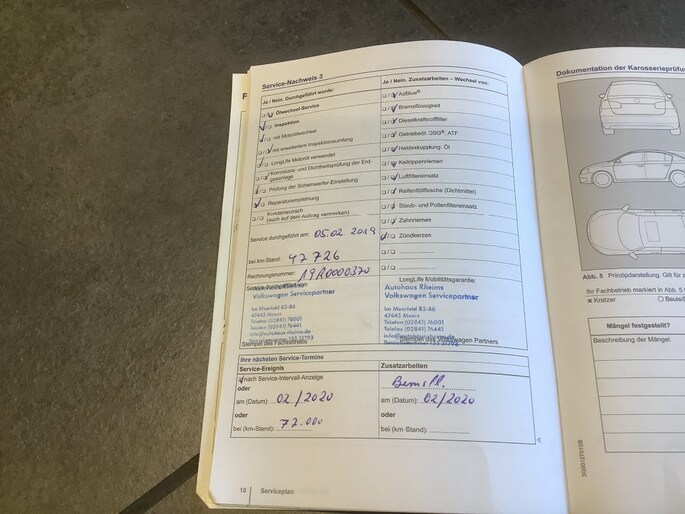 Service-Nachweis 3
Ja / Nein. Durchgeführt wurde:
Ölwechsel-Service
Inspektion
mit Motorölwechsel
mit erweitertem Inspektionsumfang
LongLife Motoröl verwendet
Korrosions- und Dichtheitsprüfung der Erd-
gasanlage
Prüfung der Scheinwerfer-Einstellung
Reparaturempfehlung
Kundenwunsch
(auch auf dem Auftrag vermerken)
Service durchgeführt am: 05.02.2019
bei km-Stand: 47726
Rechnungsnummer: 19R0000370
Autohaus Rheims
Volkswagen Servicepartner
Im Moerfeld 83-86
47445 Moers
Telefon (02841) 76001
Telefax (02841) 76441
Stempel des Fachbetriebs
Ja / Nein. Zusatzarbeiten – Wechsel von:
AdBlue®
Bremsflüssigkeit
Dieselkraftstofffilter
Getriebeöl: DSG®, ATF
Haldexkupplung: Öl
Keilrippenriemen
Luftfiltereinsatz
Reifenfüllflasche (Dichtmittel)
Staub- und Pollenfiltereinsatz
Zahnriemen
Zündkerzen
LongLife Mobilitätsgarantie:
Autohaus Rheims
Volkswagen Servicepartner
Im Moerfeld 83-86
47445 Moers
Telefon (02841) 76001
Telefax (02841) 76441
Stempel des Volkswagen Partners
Ihre nächsten Service-Termine
Service-Ereignis
nach Service-Intervall-Anzeige
oder
am (Datum): 02/2020
oder
bei (km-Stand): 77.000
Zusatzarbeiten
Bremsfl.
am (Datum): 02/2020
oder
bei (km-Stand):
18 Serviceplan
Dokumentation der Karosserieprüfu
Abb. 5 Prinzipdarstellung. Gilt für
Ihr Fachbetrieb markiert in Abb. 5
x Kratzer
Beule/D
Mängel festgestellt?
Beschreibung der Mängel: